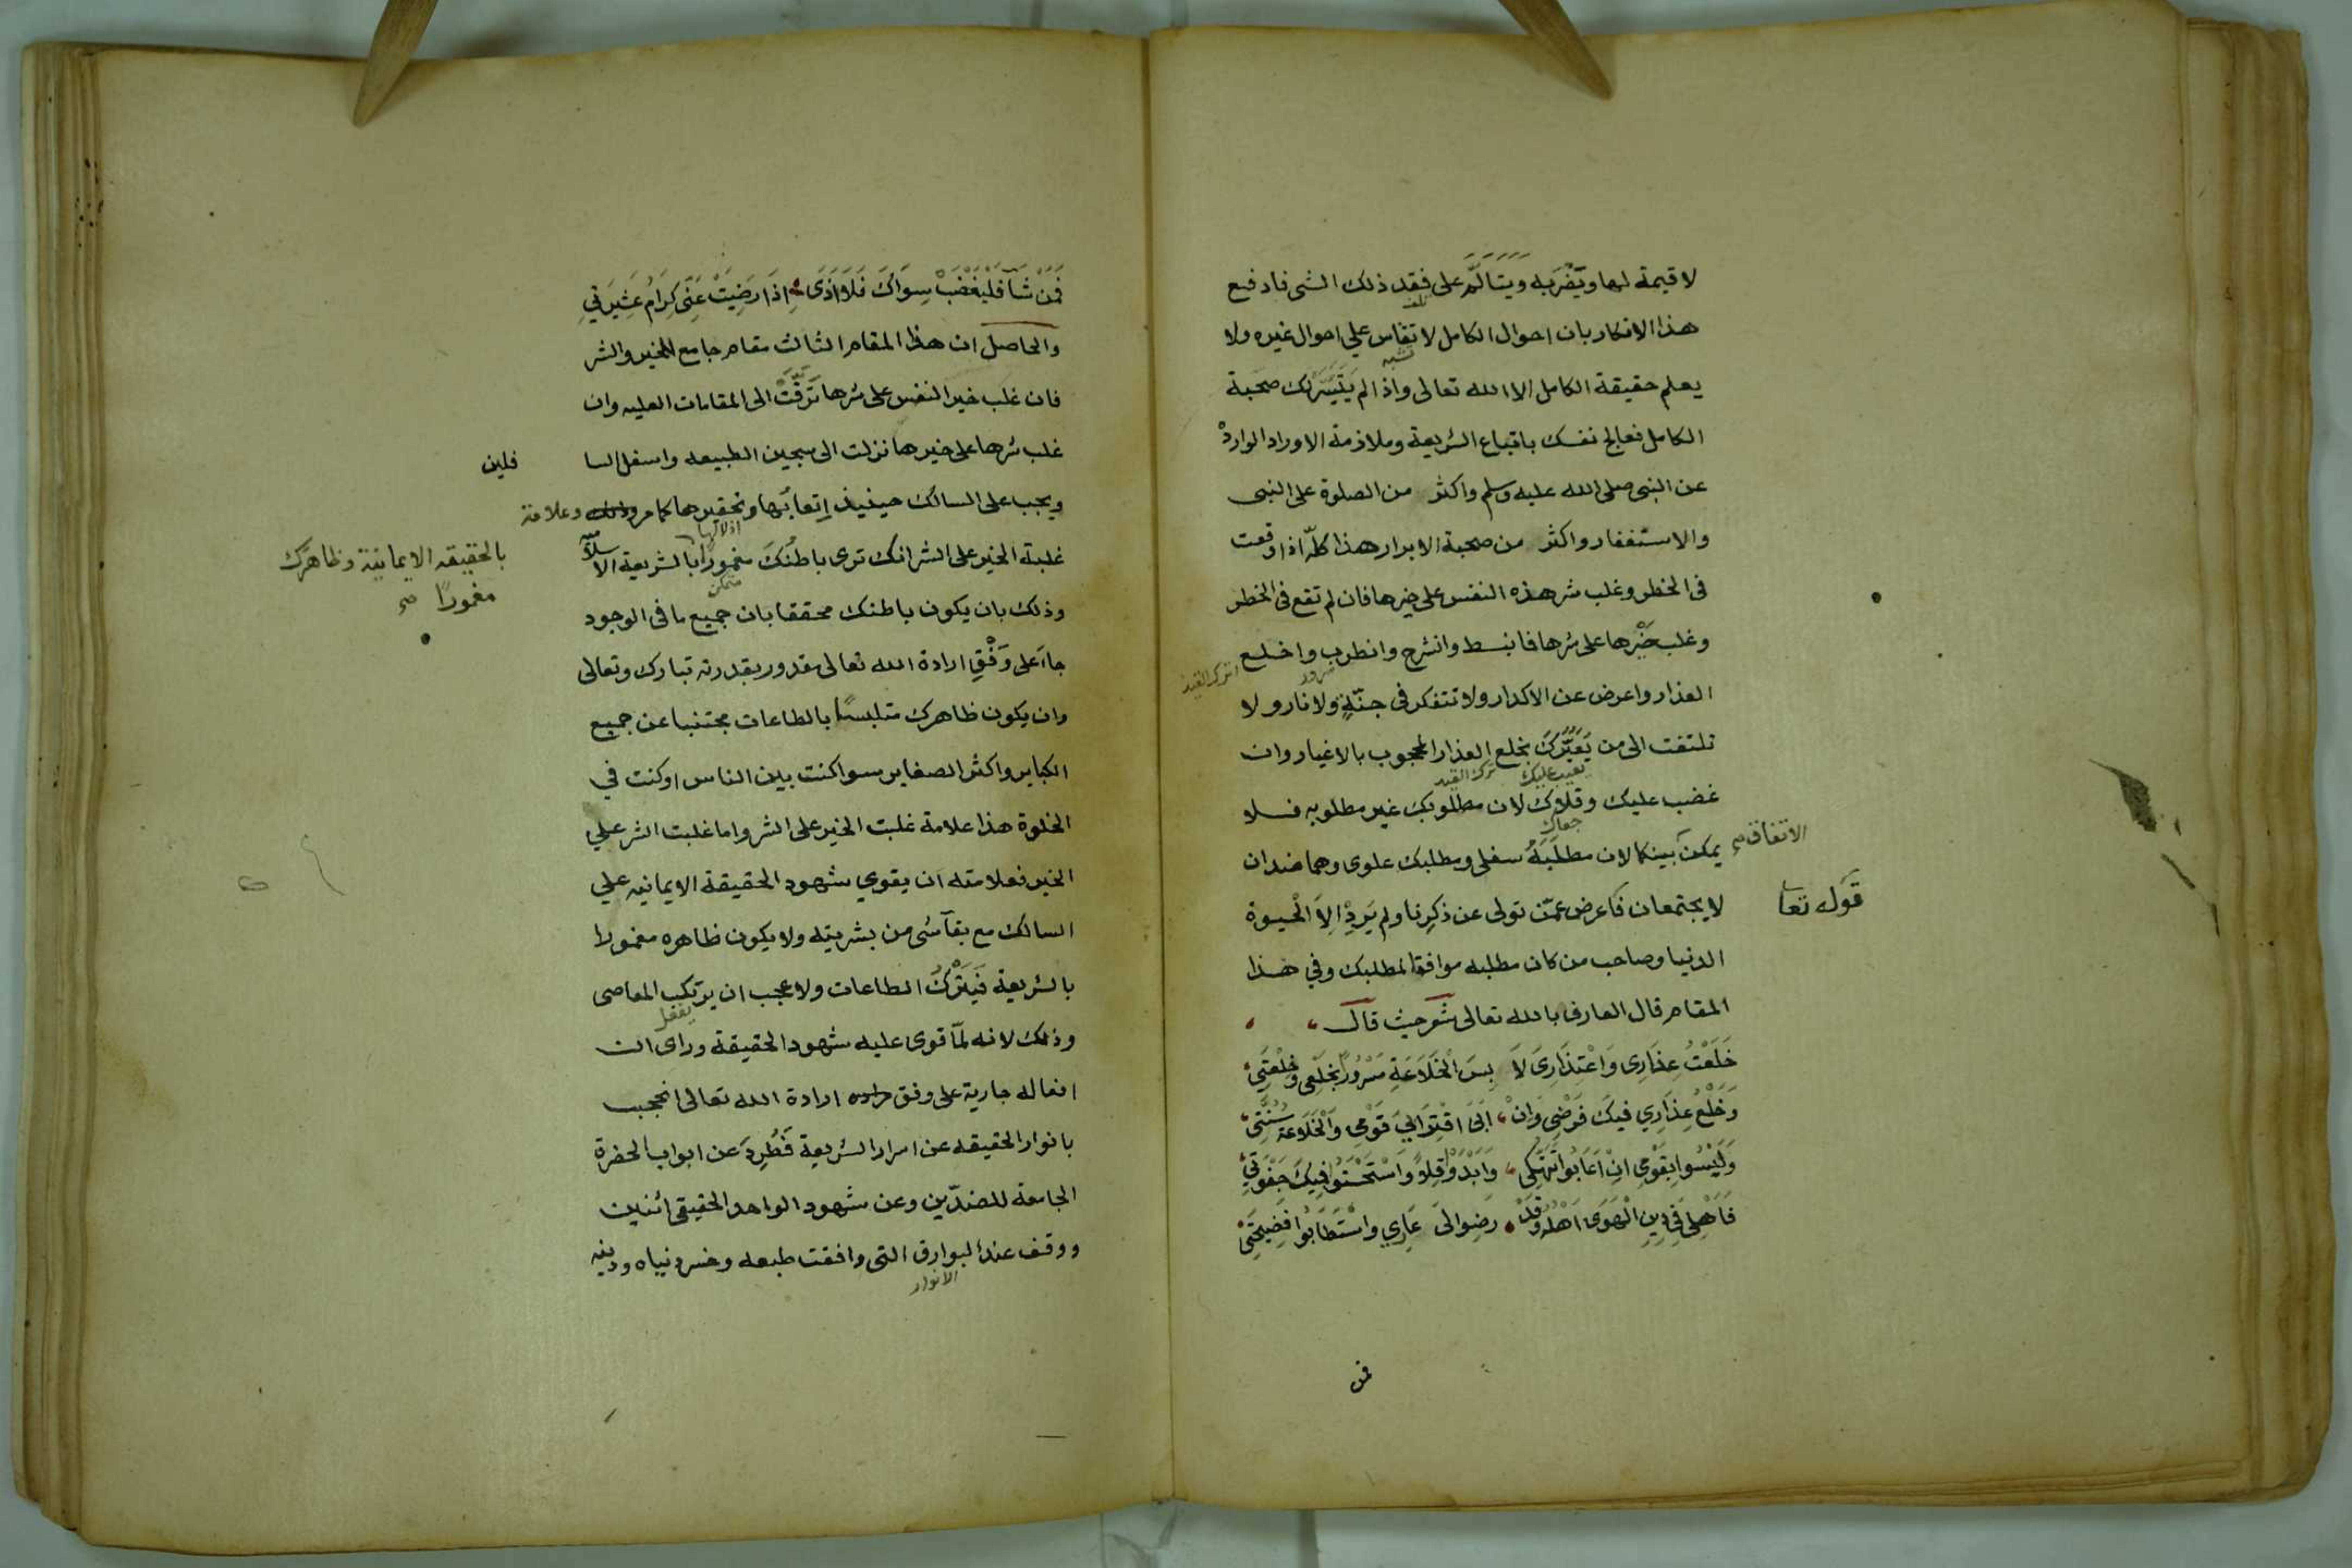 لا قيمة لها ويضربه ويتألم على فقد ذلك الشى فادفع
تلف
هذا الانكار بان احوال الكامل لا تقاس علي احوال غيره ولا
تشبه
يعلم حقيقة الكامل الا الله تعالى واذا لم يَتَيَسَّر لك صحبة
الكامل فعالج نفسك باتباع الشريعة وملازمة الاوراد الواردة
عن النبى صلى الله عليه وسلم واكثر من الصلوة على النبى
والاستغفار واكثر من صحبة الابرار هذا كلّه اذا وقعت
فى الخطر وغلب شر هذه النفس على خيرها فان لم تقع فى الخطر
وغلب خَيْرها على شرها فانبسط وانشرح وانطرب واخلع
اترك القيد
العذار واعرض عن الاكدار ولا تتفكر فى جنّةٍ ولا نار ولا
تلتفت الى من يَعَيِّرُكَ بخلع العذار المحجوب بالاغيار وان
يعيب عليك ترك القيد
غضب عليك وقلاك لان مطلوبك غير مطلوبه فلا
جفاك
يمكن بينكما لان مطلَبَهُ سفلى ومطلبك علوى وهما ضدان
الاتفاق صح
لا يجتمعان فَاَعرض عمّن تولى عن ذكرنا ولم يَرِدْ اِلاَ الْحيوة
قَوله تعا
الدنيا وصاحب من كان مطلبه موافقا لمطلبك وفي هذا
المقام قال العارف بالله تعالى شعر حيث قال
خَلَعْتُ عِذَارِى وَاعْتِذَارِىَ لاَ بِسَ الْخَلَاعَةِ مَسْرُورًا بِخَلْعِى وَخِلْعَتِىْ
وَخَلْعُ عِذَارِي فيكَ فَرْضِى وَانْ اَبَىَ اقْتِرَابِىَ قَوْمِى وَالْخَلَاعَةُ سُنَّتِىْ
وَلَيْسُوا بِقَوْمِى انْ اَعَابُوا تَهَتُّكِى وَاَبْدَوْا قِلاً وَاسْتَحْسَنُوْا فِيكَ جَفْوَتِيْ
فَاَهْلِى فِى دِينِ الْهَوَى اَهْلُهُ وَقَدْ رَضِوا لِىَ عَارِي وَاسْتَطَابُوا فَضِيحَتِىْ
فمن
فَمَنْ شَآ فَلْيَغْضَبْ سِوَاكَ فَلاَ اَذَى اِذَا رَضِيَتْ عَنّى كِرَامُ عَشِيرَتِي
والحاصل ان هذا المقام الثالث مقام جامع للخير والشر
فان غلب خير النفس على شرها تَرَقَّتْ الى المقامات العليه وان
غلب شرها على خيرها نزلت الى سجين الطبيعه واسفل السا
فلين
ويجب على السالك حينيذ اِتعابُها وتحقيرها كما مر وعلامة
اذلالها
غلبة الخير على الشر انك ترى باطنَكَ مغمورًا بالشريعة الاسلاميّه
بالحقيقه الايمانية وظاهرَك
مغمورًا صح
متمكن
وذلك بان يكون باطنك محققا بان جميع ما فى الوجود
جاءَ على وَفْقِ ارادة الله تعالى مقدور بقدرته تبارك وتعالى
وان يكون ظاهرك متلبسًا بالطاعات مجتنبا عن جميع
الكباير واكثر الصغاير سوا كنت بين الناس او كنت في
الخلوة هذا علامة غلبت الخير على الشر واما غلبت الشر علي
الخير فعلامته ان يقوي شهود الحقيقة الايمانيه علي
السالك مع بقآ شى من بشريته ولا يكون ظاهره مغمورا
بالشريعة فَيَتْرُكُ الطاعات ولا عجب ان يرتكب المعاصى
يفعل
وذلك لانه لمّا قوى عليه شهود الحقيقة وراى ان
افعاله جارية على وفق ارادة الله تعالى انحجب
بانوار الحقيقه عن اسرار الشريعة فَطُرِدَ عن ابواب الحضرة
الجامعة للضدّين وعن شهود الواحد الحقيقى اثنين
ووقف عند البوارق التى وافقت طبعه وخسر دنياه ودينه
الانوار